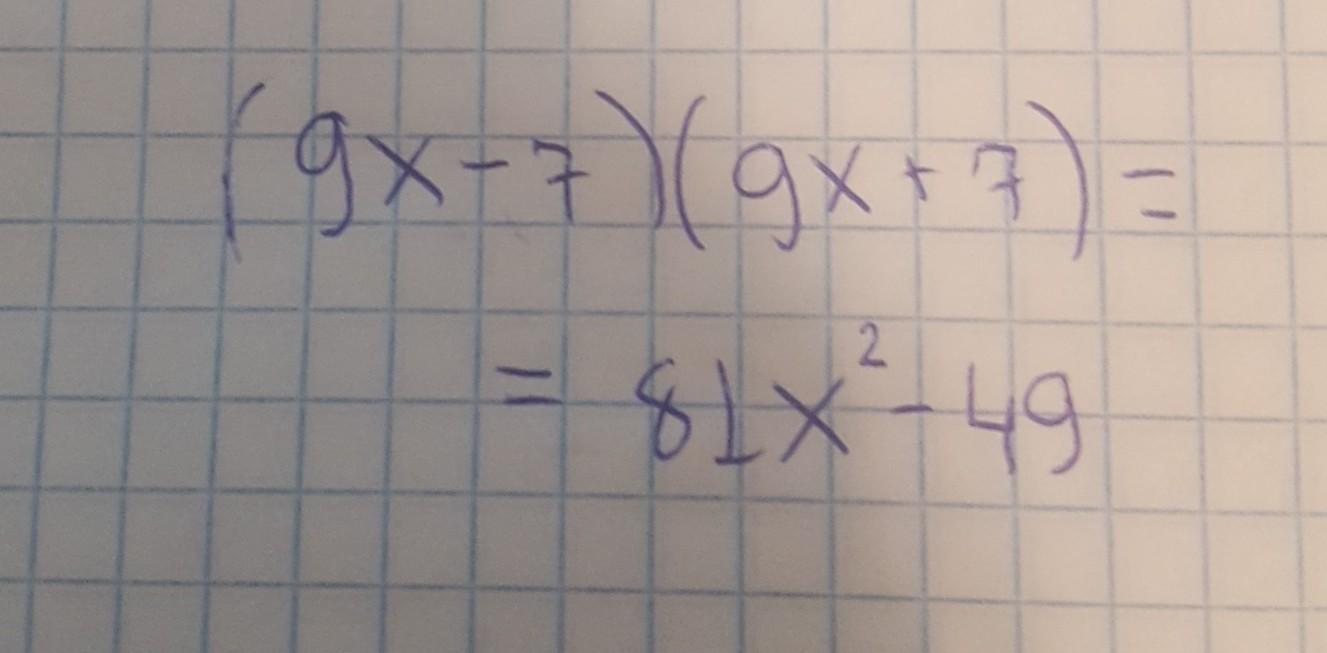 (9x-7)(9x+7)=
= 81x² - 49